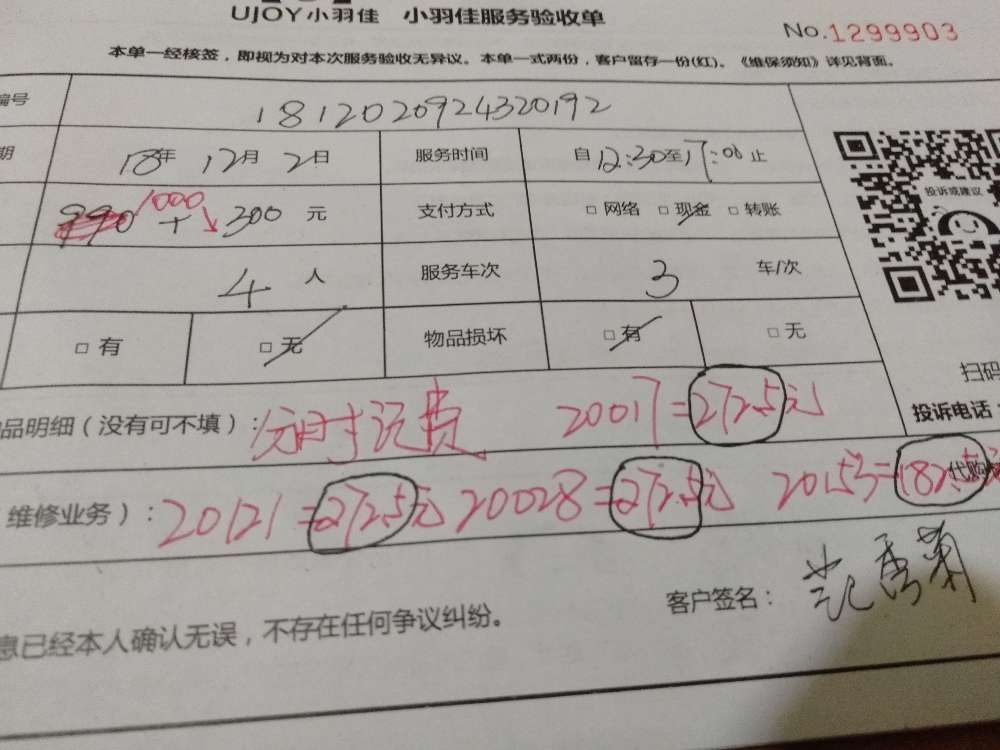 UJOY小羽佳 小羽佳服务验收单
No.1299903
本单一经核签，即视为对本次服务验收无异议。本单一式两份，客户留存一份(红)。《维保须知》详见背面。
编号 1812020924320192
期 18年 12月 2日 服务时间 自12:30至17:00止
990 1000 + 300 元 支付方式 □ 网络 □ 现金 □ 转账
4 人 服务车次 3 车/次
□ 有 □ 无 物品损坏 □ 有 □ 无
投诉或建议
扫码
投诉电话：
品明细（没有可不填）： 20017=272.5元
维修业务）： 20121=272.5元 20028=272.5元 20153=182.5元
代购
客户签名：
息已经本人确认无误，不存在任何争议纠纷。